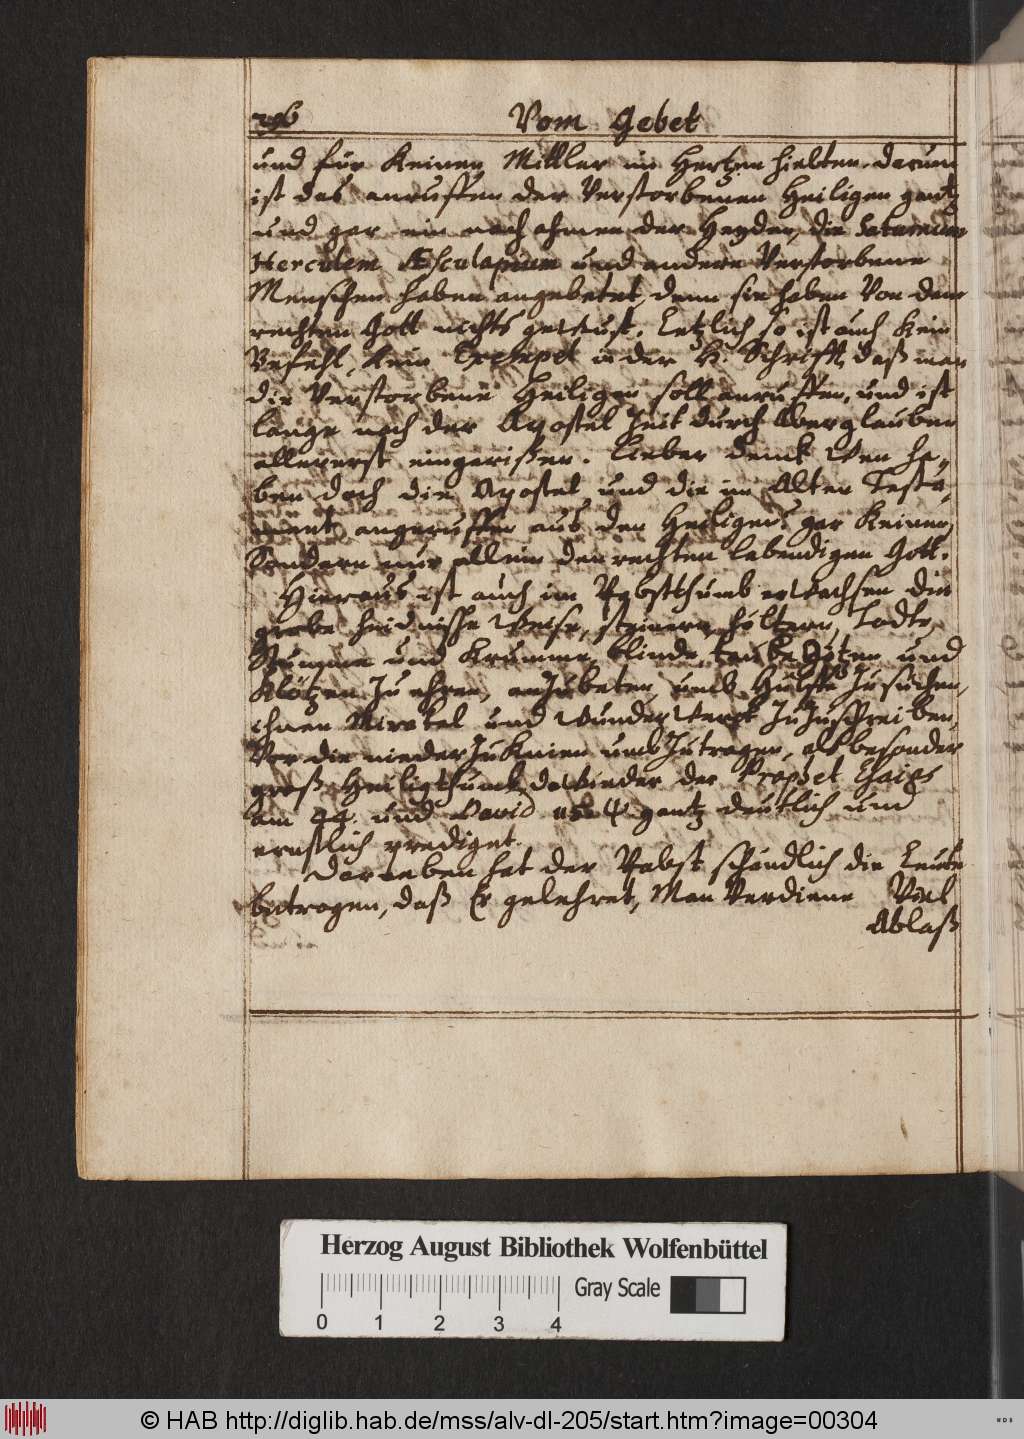 296 Vom Gebet
und für keinen Mittler im Hertzen hielten. darum
ist das anruffen der Verstorbenen Heiligen gantz
und gar ein nach ahmen der Heyden, die Saturnum
Herculem Æsculapium und andere Verstorbene
Menschen haben angebetet, denn sie haben Von dem
rechten Gott nichts gewust. Letzlich so ist auch kein
Befehl, kein Exempel in der H. Schrifft, daß man
die Verstorbene Heiligen soll anruffen, und ist
lange nach der Apostel Zeit durch Aberglauben
allererst eingerißen. Lieber denck Wen ha-
ben doch die Apostel und die im Alten Testa-
ment angeruffen aus den Heiligen? gar keinen,
Sondern nur allein den rechten lebendigen Gott.
Hieraus ist auch im Pabstthumb erwachsen die
grobe heidnische Weise, steinern, höltzern, Todte,
Stumme und Krumme, blinde, taube Götzen und
Klötzen zu ehren, anzubeten, umb Hülffe zusuchen,
ihnen Mirakel und Wunder Werck zuzuschreiben,
Vor die nieder zu knien umb zutragen, als besonder
groß Heiligthumb, dawieder der Prophet Esaias
am 44. und David gantz deutlich und
ernstlich prediget.
Darneben hat der Pabst schändlich die Leute
betrogen, daß Er gelehret, Man Verdiene Viel
Ablaß
Herzog August Bibliothek Wolfenbüttel
Gray Scale
0 1 2 3 4
© HAB http://diglib.hab.de/mss/alv-dl-205/start.htm?image=00304